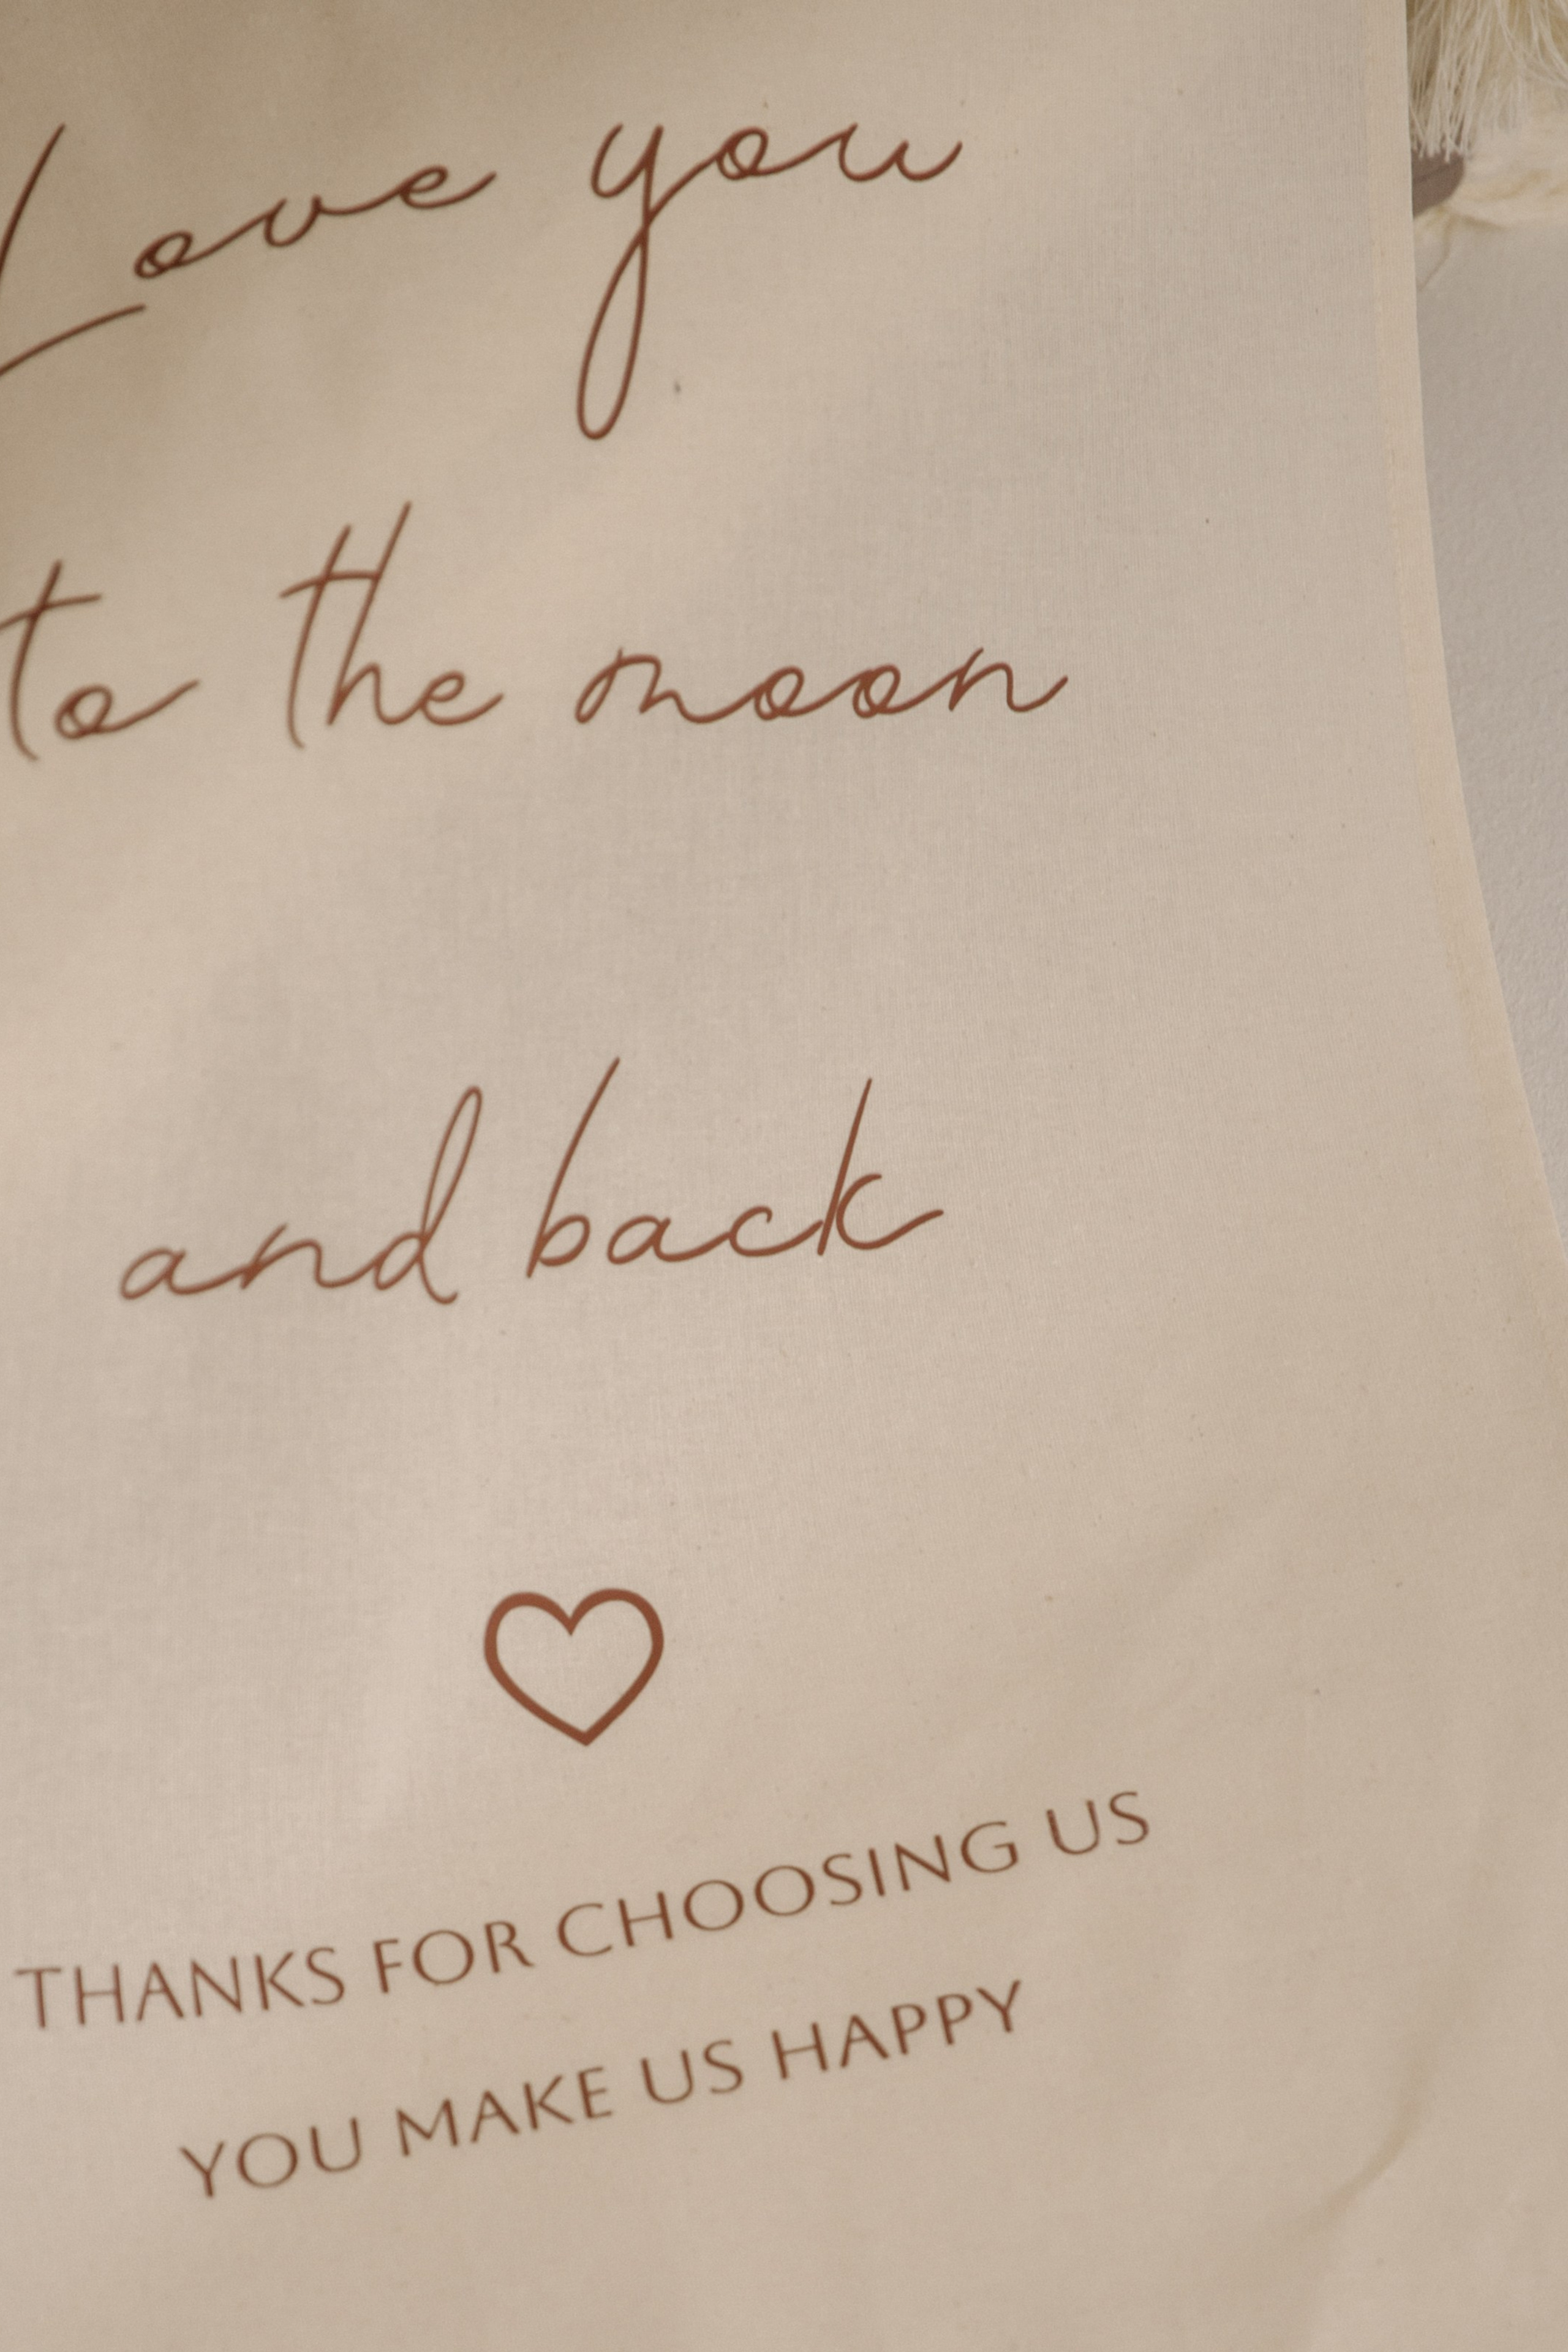 Love you
to the moon
and back
THANKS FOR CHOOSING US
YOU MAKE US HAPPY